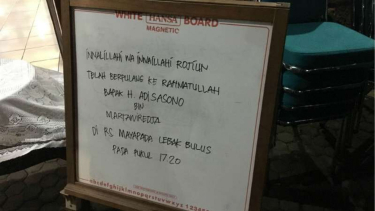 WHITE HANSA BOARD
MAGNETIC
INNALILLAHI WA INNAILLAHI ROJIUN
TELAH BERPULANG KE RAHMATULLAH
BAPAK H. ADI SASONO
BIN
MARTAWIREDJA
DI RS MAYAPADA LEBAK BULUS
PADA PUKUL 17.20